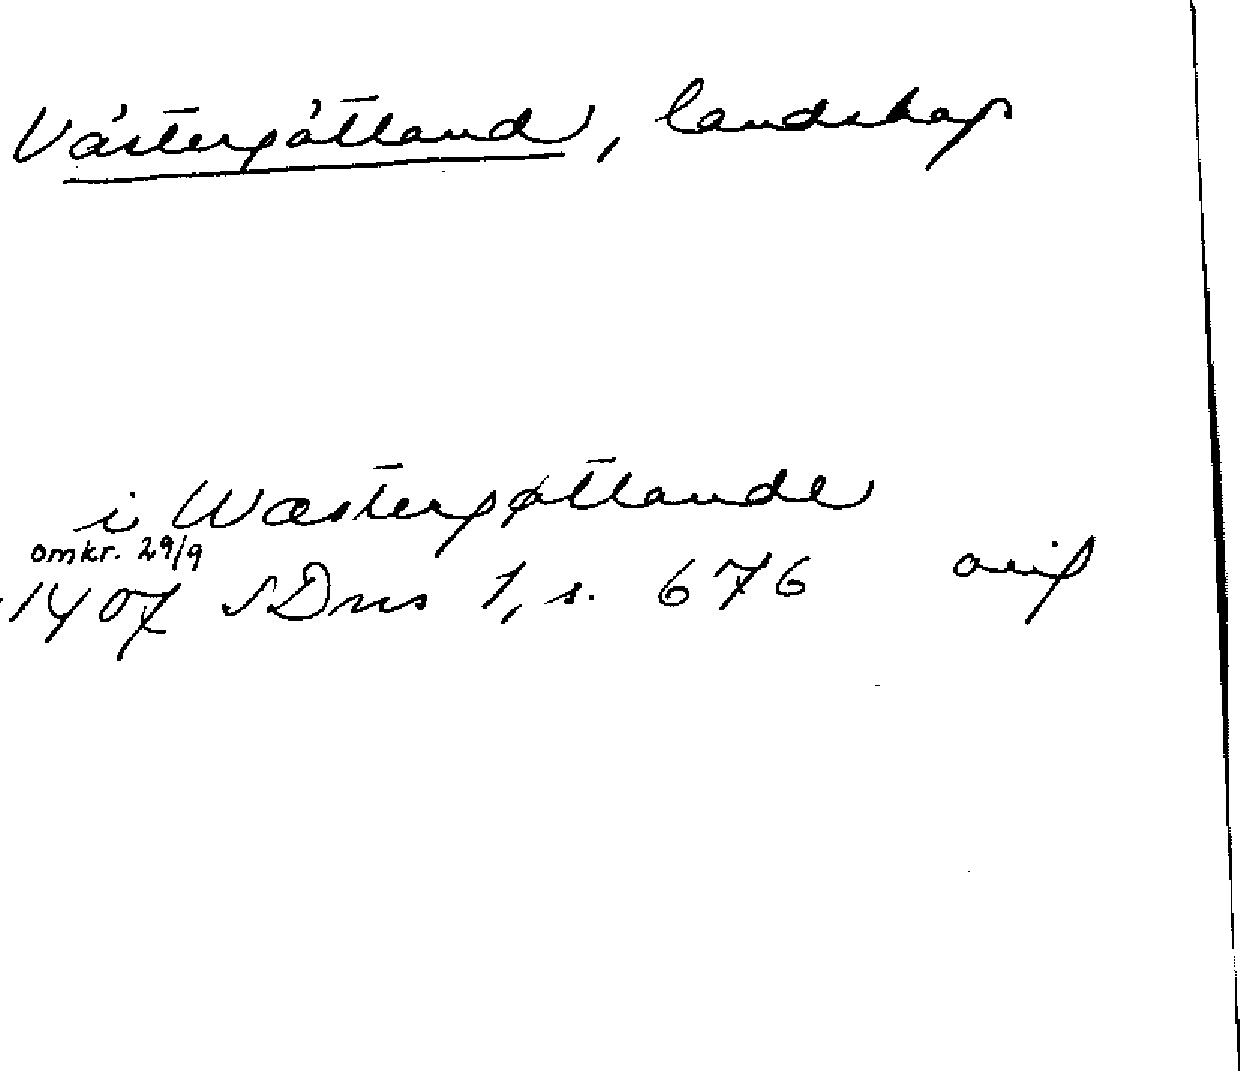 Västergötland, landskap
i Wæstergøtlande
omkr. 29/9
1407 SDns 1, s. 676 avif